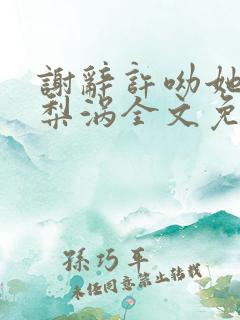 謝辭許呦她
梨涡全文免
孫巧平
未经同意禁止转载